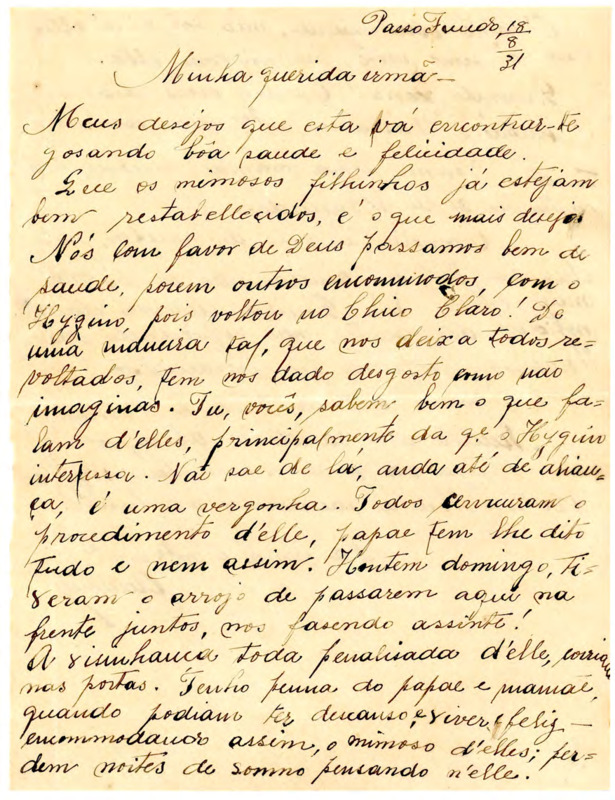 Passo Fundo, 18/8/31
Minha querida irmã—
Meus desejos que esta vá encontrar-te
gosando bôa saude e felicidade.
Que os mimosos filhinhos já estejam
bem restabellecidos, é o que mais desejo.
Nós com favor de Deus passamos bem de
saude, porem outros encommodos, com o
Hygino, pois voltou no Chico Claro! De
uma maneira tal, que nos deixa todos re-
voltados, tem nos dado desgosto como não
imaginas. Tu, vocês, sabem bem o que fa-
lam d'elles, principalmente da qe. o Hygino
interessa. Não sae de lá, anda até de alian-
ça, é uma vergonha. Todos censuram o
procedimento d'elle, papae tem lhe dito
tudo e nem assim. Hontem domingo, ti-
veram o arrojo de passarem aqui na
frente juntos, nos fasendo assinte!
A visinhança toda penalisada d'elle, corria
nas portas. Tenho penna do papae e mamãe,
quando podiam ter descanso, e viver feliz—
encommodando assim, o mimoso d'elles; per-
dem noites de somno pensando n'elle.